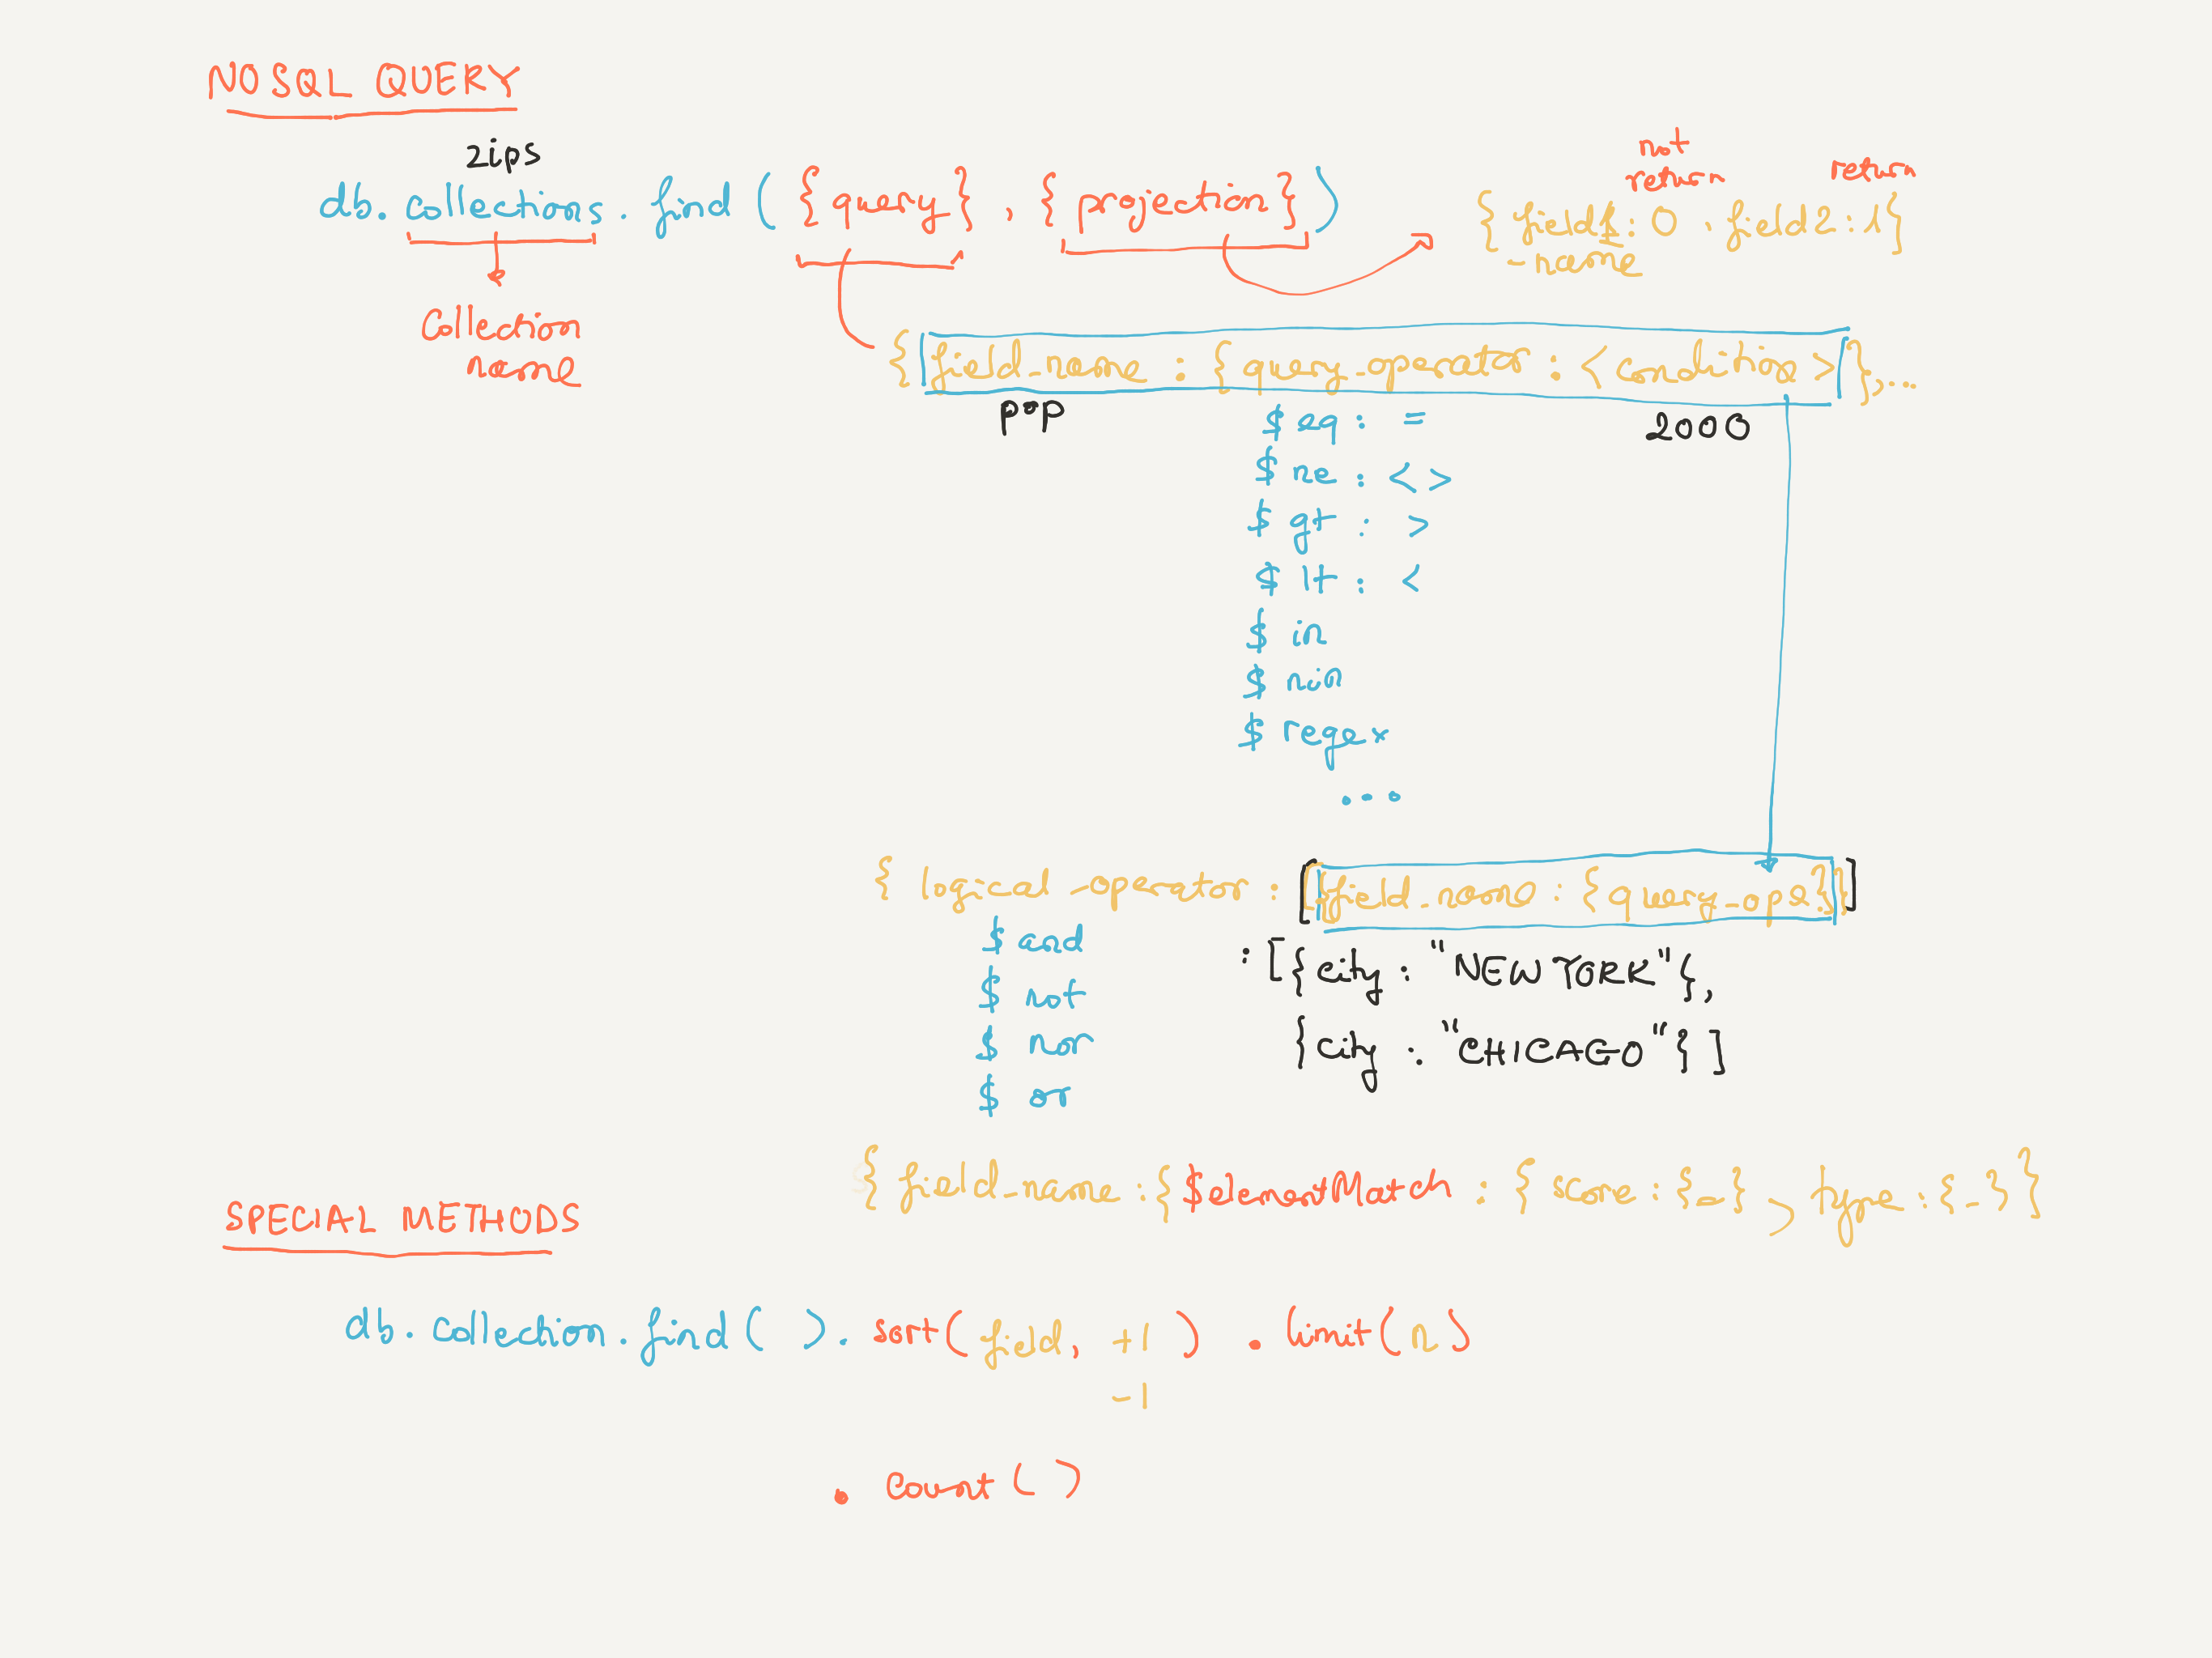 NOSQL QUERY
zips
db. collections . find ( {query} , {projection} )
not
return
return
{ field1 : 0 , field2 : 1 }
_name
Collection
name
{ field_name : { query_operator : <condition> } , ...
pop
2000
$ eq : =
$ ne : < >
$ gt : >
$ lt : <
$ in
$ nin
$ regex
...
{ logical_operator : [ { field_name : { query_ops } } ]
$ and
$ not
$ nor
$ or
: [ { city : "NEW YORK" } ,
{ city : "CHICAGO" } ]
{ field_name : { $elementMatch : { score : { _ } , type : { _ } }
SPECIAL METHODS
db . collection . find ( ) . sort ( field, +1 ) . limit ( n )
-1
. count ( )